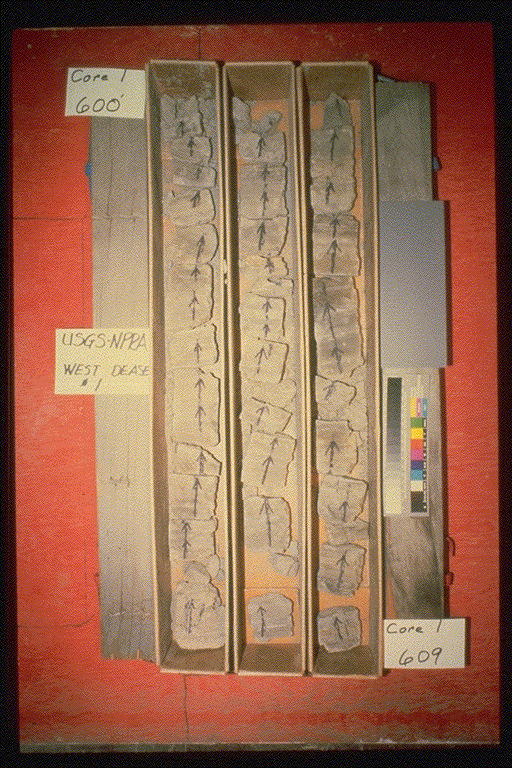 Core 1
600'
USGS-NPRA
WEST DEASE
#1
Core 1
609